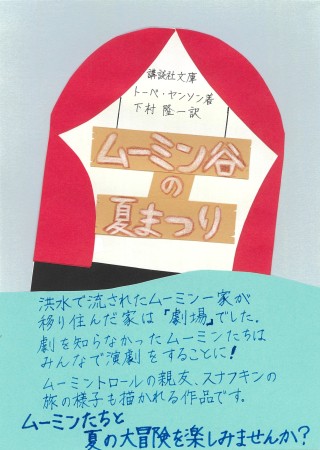 講談社文庫
トーベ・ヤンソン著
下村隆一訳
ムーミン谷
の
夏まつり
洪水で流されたムーミン一家が
移り住んだ家は「劇場」でした。
劇を知らなかったムーミンたちは
みんなで演劇をすることに！
ムーミントロールの親友、スナフキンの
旅の様子も描かれる作品です。
ムーミンたちと
夏の大冒険を楽しみませんか？